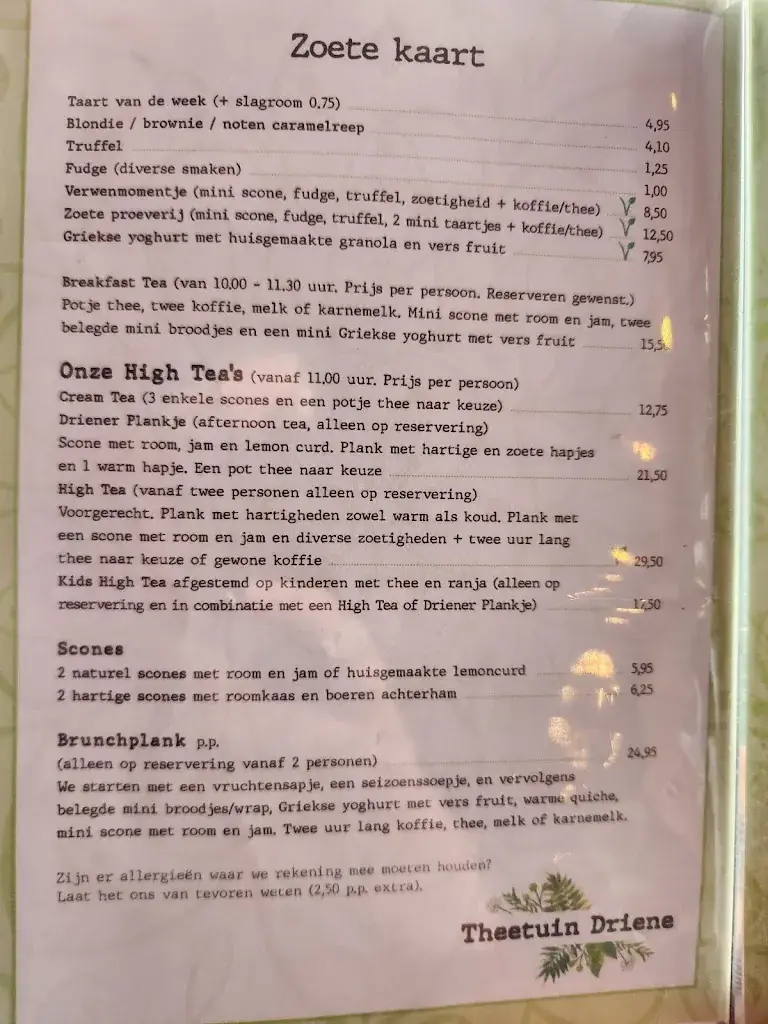 Zoete kaart
Taart van de week (+ slagroom 0.75) 4,95
Blondie / brownie / noten caramelreep 4,10
Truffel 1,25
Fudge (diverse smaken) 1,00
Verwenmomentje (mini scone, fudge, truffel, zoetigheid + koffie/thee) 8,50
Zoete proeverij (mini scone, fudge, truffel, 2 mini taartjes + koffie/thee) 12,50
Griekse yoghurt met huisgemaakte granola en vers fruit 7,95
Breakfast Tea (van 10.00 - 11.30 uur. Prijs per persoon. Reserveren gewenst.)
Potje thee, twee koffie, melk of karnemelk. Mini scone met room en jam, twee
belegde mini broodjes en een mini Griekse yoghurt met vers fruit
Onze High Tea's (vanaf 11.00 uur. Prijs per persoon)
Cream Tea (3 enkele scones en een potje thee naar keuze) 12,75
Driener Plankje (afternoon tea, alleen op reservering)
Scone met room, jam en lemon curd. Plank met hartige en zoete hapjes
en 1 warm hapje. Een pot thee naar keuze 21,50
High Tea (vanaf twee personen alleen op reservering)
Voorgerecht. Plank met hartigheden zowel warm als koud. Plank met
een scone met room en jam en diverse zoetigheden + twee uur lang
thee naar keuze of gewone koffie 29,50
Kids High Tea afgestemd op kinderen met thee en ranja (alleen op
reservering en in combinatie met een High Tea of Driener Plankje) 17,50
Scones
2 naturel scones met room en jam of huisgemaakte lemoncurd 5,95
2 hartige scones met roomkaas en boeren achterham 6,25
Brunchplank p.p.
(alleen op reservering vanaf 2 personen) 24,95
We starten met een vruchtensapje, een seizoenssoepje, en vervolgens
belegde mini broodjes/wrap, Griekse yoghurt met vers fruit, warme quiche,
mini scone met room en jam. Twee uur lang koffie, thee, melk of karnemelk.
Zijn er allergieën waar we rekening mee moeten houden?
Laat het ons van tevoren weten (2,50 p.p. extra).
Theetuin Driene